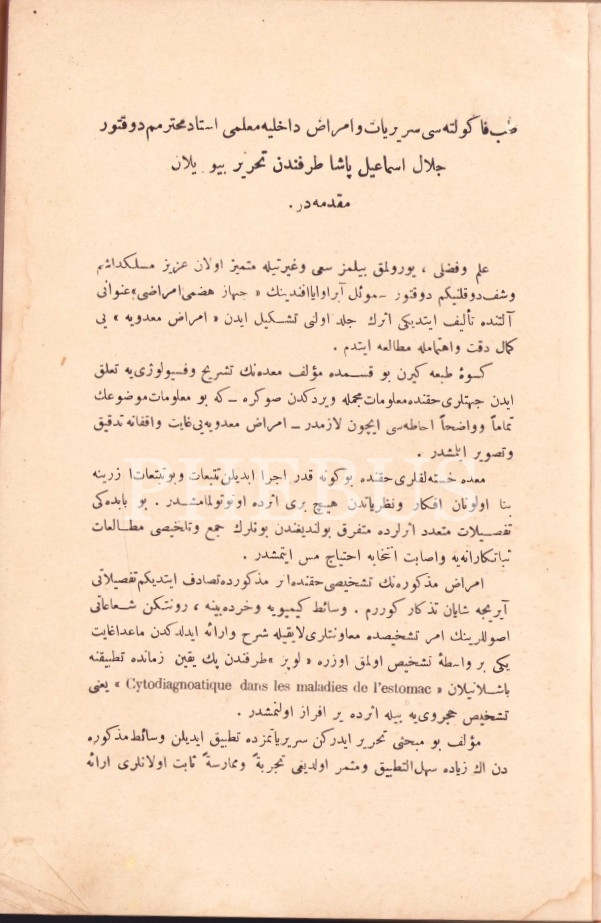 طب فاكولته‌سی سریریات وامراض داخلیه معلمی استاد محترمم دوقتور
جلال اسماعیل پاشا طرفندن تحریر بیوریلان
مقدمه‌در .
علم وفضلی ، یورولمق بیلمز سعی وغیرتیله متمیز اولان عزیز مسلكداشم
وشف دوقلنیكم دوقتور سموئل آبراوایا افندینك « جهاز هضمی امراضی » عنوانی
آلتنده تألیف ایتدیكی اثرك جلد اولنی تشكیل ایدن « امراض معدویه » یی
كمال دقت واهتمامله مطالعه ایتدم .
كسوۀ طبعه كیرن بو قسمده مؤلف معده‌نك تشریح وفسیولوژی‌یه تعلق
ایدن جهتلری حقنده معلومات مجمله ویردكدن صوكره ـ كه بو معلومات موضوعك
تماماً وواضحاً احاطه‌سی ایچون لازمدر ـ امراض معدویه‌یی غایت واقفانه تدقیق
وتصویر ایلمشدر .
معده خسته‌لقلری حقنده بوكونه قدر اجرا ایدیلن تتبعات وبو تتبعات اوزرینه
بنا اولونان افكار ونظریاتدن هیچ بری اثرده اونوتولمامشدر . بو بابده‌كی
تفصیلات متعدد اثرلرده متفرق بولندیغندن بونلرك جمع وتلخیصی مطالعات
ثباتكارانه‌یه واصابت انتخابه احتیاج مس ایتمشدر .
امراض مذكوره‌نك تشخیصی حقنده اثر مذكورده تصادف ایتدیكم تفصیلاتی
آیریجه شایان تذكار كوررم . وسائط كیمیویه وخرده‌بینه ، رونتكن شعاعاتی
اصوللرینك امر تشخیصده معاونتلری لایقیله شرح وارائه ایدلدكدن ماعدا غایت
یكی بر واسطۀ تشخیص اولمق اوزره « لوپز » طرفندن پك یقین زمانده تطبیقنه
باشلانیلان « Cytodiagnoatique dans les maladies de l'estomac » یعنی
تشخیص حجروی‌یه بیله اثرده یر افراز اولنمشدر .
مؤلف بو مبحثی تحریر ایدركن سریریاتمزده تطبیق ایدیلن وسائط مذكوره
دن اك زیاده سهل التطبیق ومثمر اولدیغی تجربةً وممارسةً ثابت اولانلری ارائه
PHEBUS